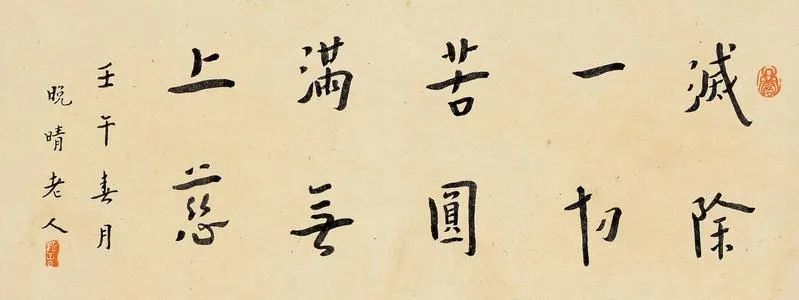 滅除
一切
苦圓
滿無
上慈
壬午春月
晚晴老人